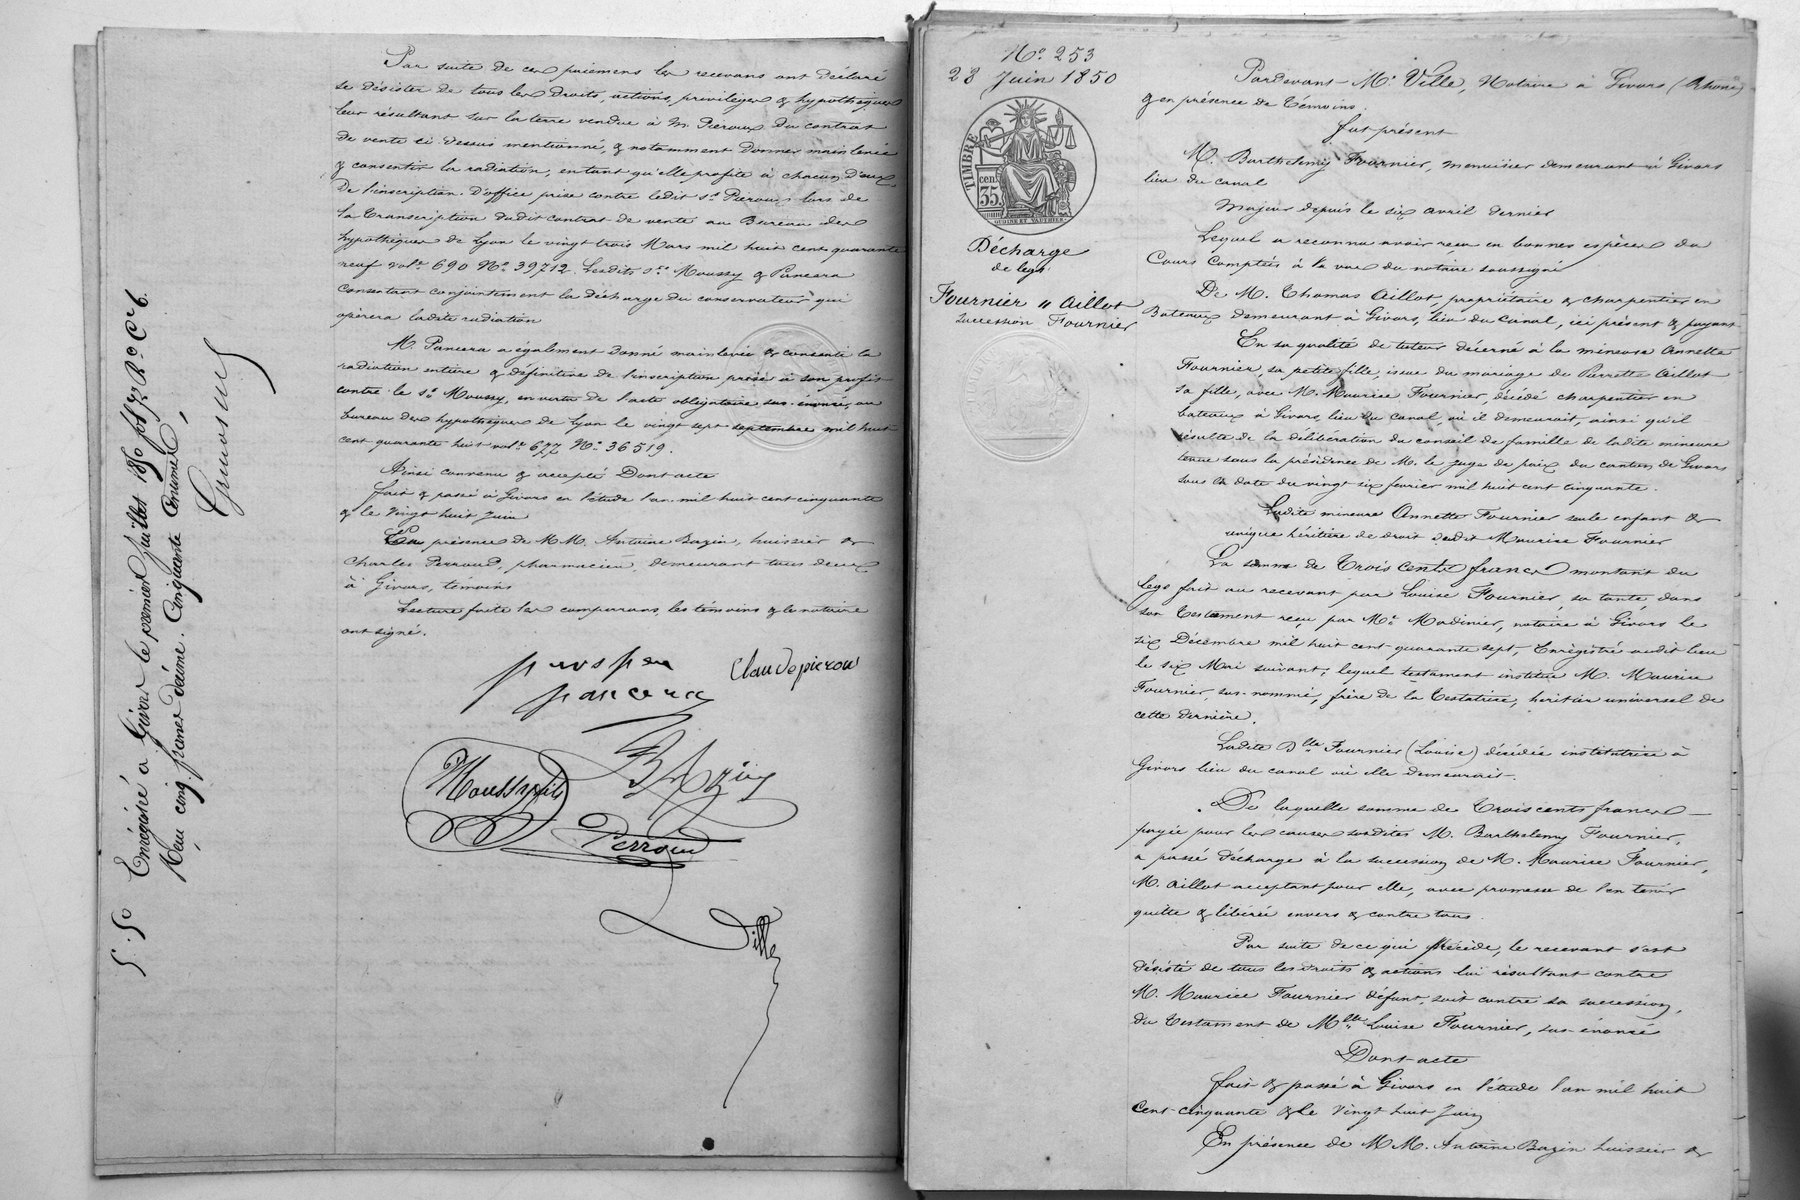 Par suite de ces paiemens les recevans ont déclaré
se désister de tous les droits, actions, privilèges & hypothèques
leur résultant sur la terre vendue à M. Pieroux du contrat
de vente ci-dessus mentionné, & notamment donner mainlevée
& consentir la radiation, entant qu'elle profite à chacun d'eux,
De l'inscription d'office prise contre ledit sr. Pieroux lors de
la transcription dudit contrat de vente au Bureau des
hypothèques de Lyon le vingt trois Mars mil huit cent quarante
neuf vole. 690 No. 39712. Lesdits srs. Moussy & Pancera
Consentant conjointement la décharge du conservateur qui
opèrera ladite radiation
M. Pancera a également donné mainlevée & consenti la
radiation entière & définitive de l'inscription prise à son profit
contre le sr. Moussy, en vertu de l'acte obligatoire sus-énoncé, au
bureau des hypothèques de Lyon le vingt sept septembre mil huit
cent quarante huit vole. 677 No. 36519.
Ainsi convenu & accepté Dont acte
fait & passé à Givors en l'étude l'an mil huit cent cinquante
& le vingt huit Juin
En présence de MM. Antoine Bazin, huissier &
Charles Perroud, pharmacien, demeurant tous deux
à Givors, témoins
Lecture faite les comparans, les témoins & le notaire
ont signé.
prosper
pancera
Claude pieroux
Moussy fils
Bazin
Perroud
Ville
5.50 Enregistré à Givors le premier Juillet 1850 fo. 57 Ro. Cr. 6.
Reçu cinq francs décime Cinquante Centimes
No. 253
28 Juin 1850
TIMBRE
35 cen
Décharge
de legs
Fournier " Aillot
succession Fournier
Pardevant Me. Ville, Notaire à Givors (Rhône)
& en présence de témoins.
fut présent
M. Barthelemy Fournier, menuisier demeurant à Givors
lieu du canal
Majeur depuis le six avril dernier
Lequel a reconnu avoir reçu en bonnes espèces du
Cours Comptées à la vue du notaire soussigné
De M. Thomas Aillot, propriétaire & charpentier en
Bateaux demeurant à Givors, lieu du Canal, ici présent & payant
En sa qualité de tuteur décerné à la mineure Annette
Fournier, sa petite fille, issue du mariage de Pierrette Aillot
sa fille, avec M. Maurice Fournier, décédé charpentier en
bateaux à Givors, lieu du canal, où il demeurait, ainsi qu'il
résulte de la délibération du conseil de famille de ladite mineure
tenue sous la présidence de M. le juge de paix du canton de Givors
sous la date du vingt six février mil huit cent cinquante.
Ladite mineure Annette Fournier seule enfant &
unique héritière de droit dudit Maurice Fournier
La somme de Trois Cents francs montant du
legs fait au recevant par Louise Fournier, sa tante, dans
son testament reçu par Me. Madinier, notaire à Givors le
six Décembre mil huit cent quarante sept, Enregistré audit lieu
le six Mai suivant; lequel testament institue M. Maurice
Fournier sus-nommé, frère de la testatrice, héritier universel de
cette dernière.
Ladite Dlle. Fournier (Louise) décédée institutrice à
Givors lieu du canal où elle demeurait.
De laquelle somme de Trois cents francs
payée pour les causes susdites M. Barthelemy Fournier,
a passé décharge à la succession de M. Maurice Fournier,
M. Aillot acceptant pour elle, avec promesse de l'en tenir
quitte & libérée envers & contre tous.
Par suite de ce qui précède, le recevant s'est
désisté de tous les droits & actions lui résultant contre
M. Maurice Fournier défunt, soit contre sa succession,
du testament de Mlle. Louise Fournier, sus-énoncé
Dont acte
fait & passé à Givors en l'étude l'an mil huit
cent-cinquante & le vingt huit Juin
En présence de MM. Antoine Bazin huissier &